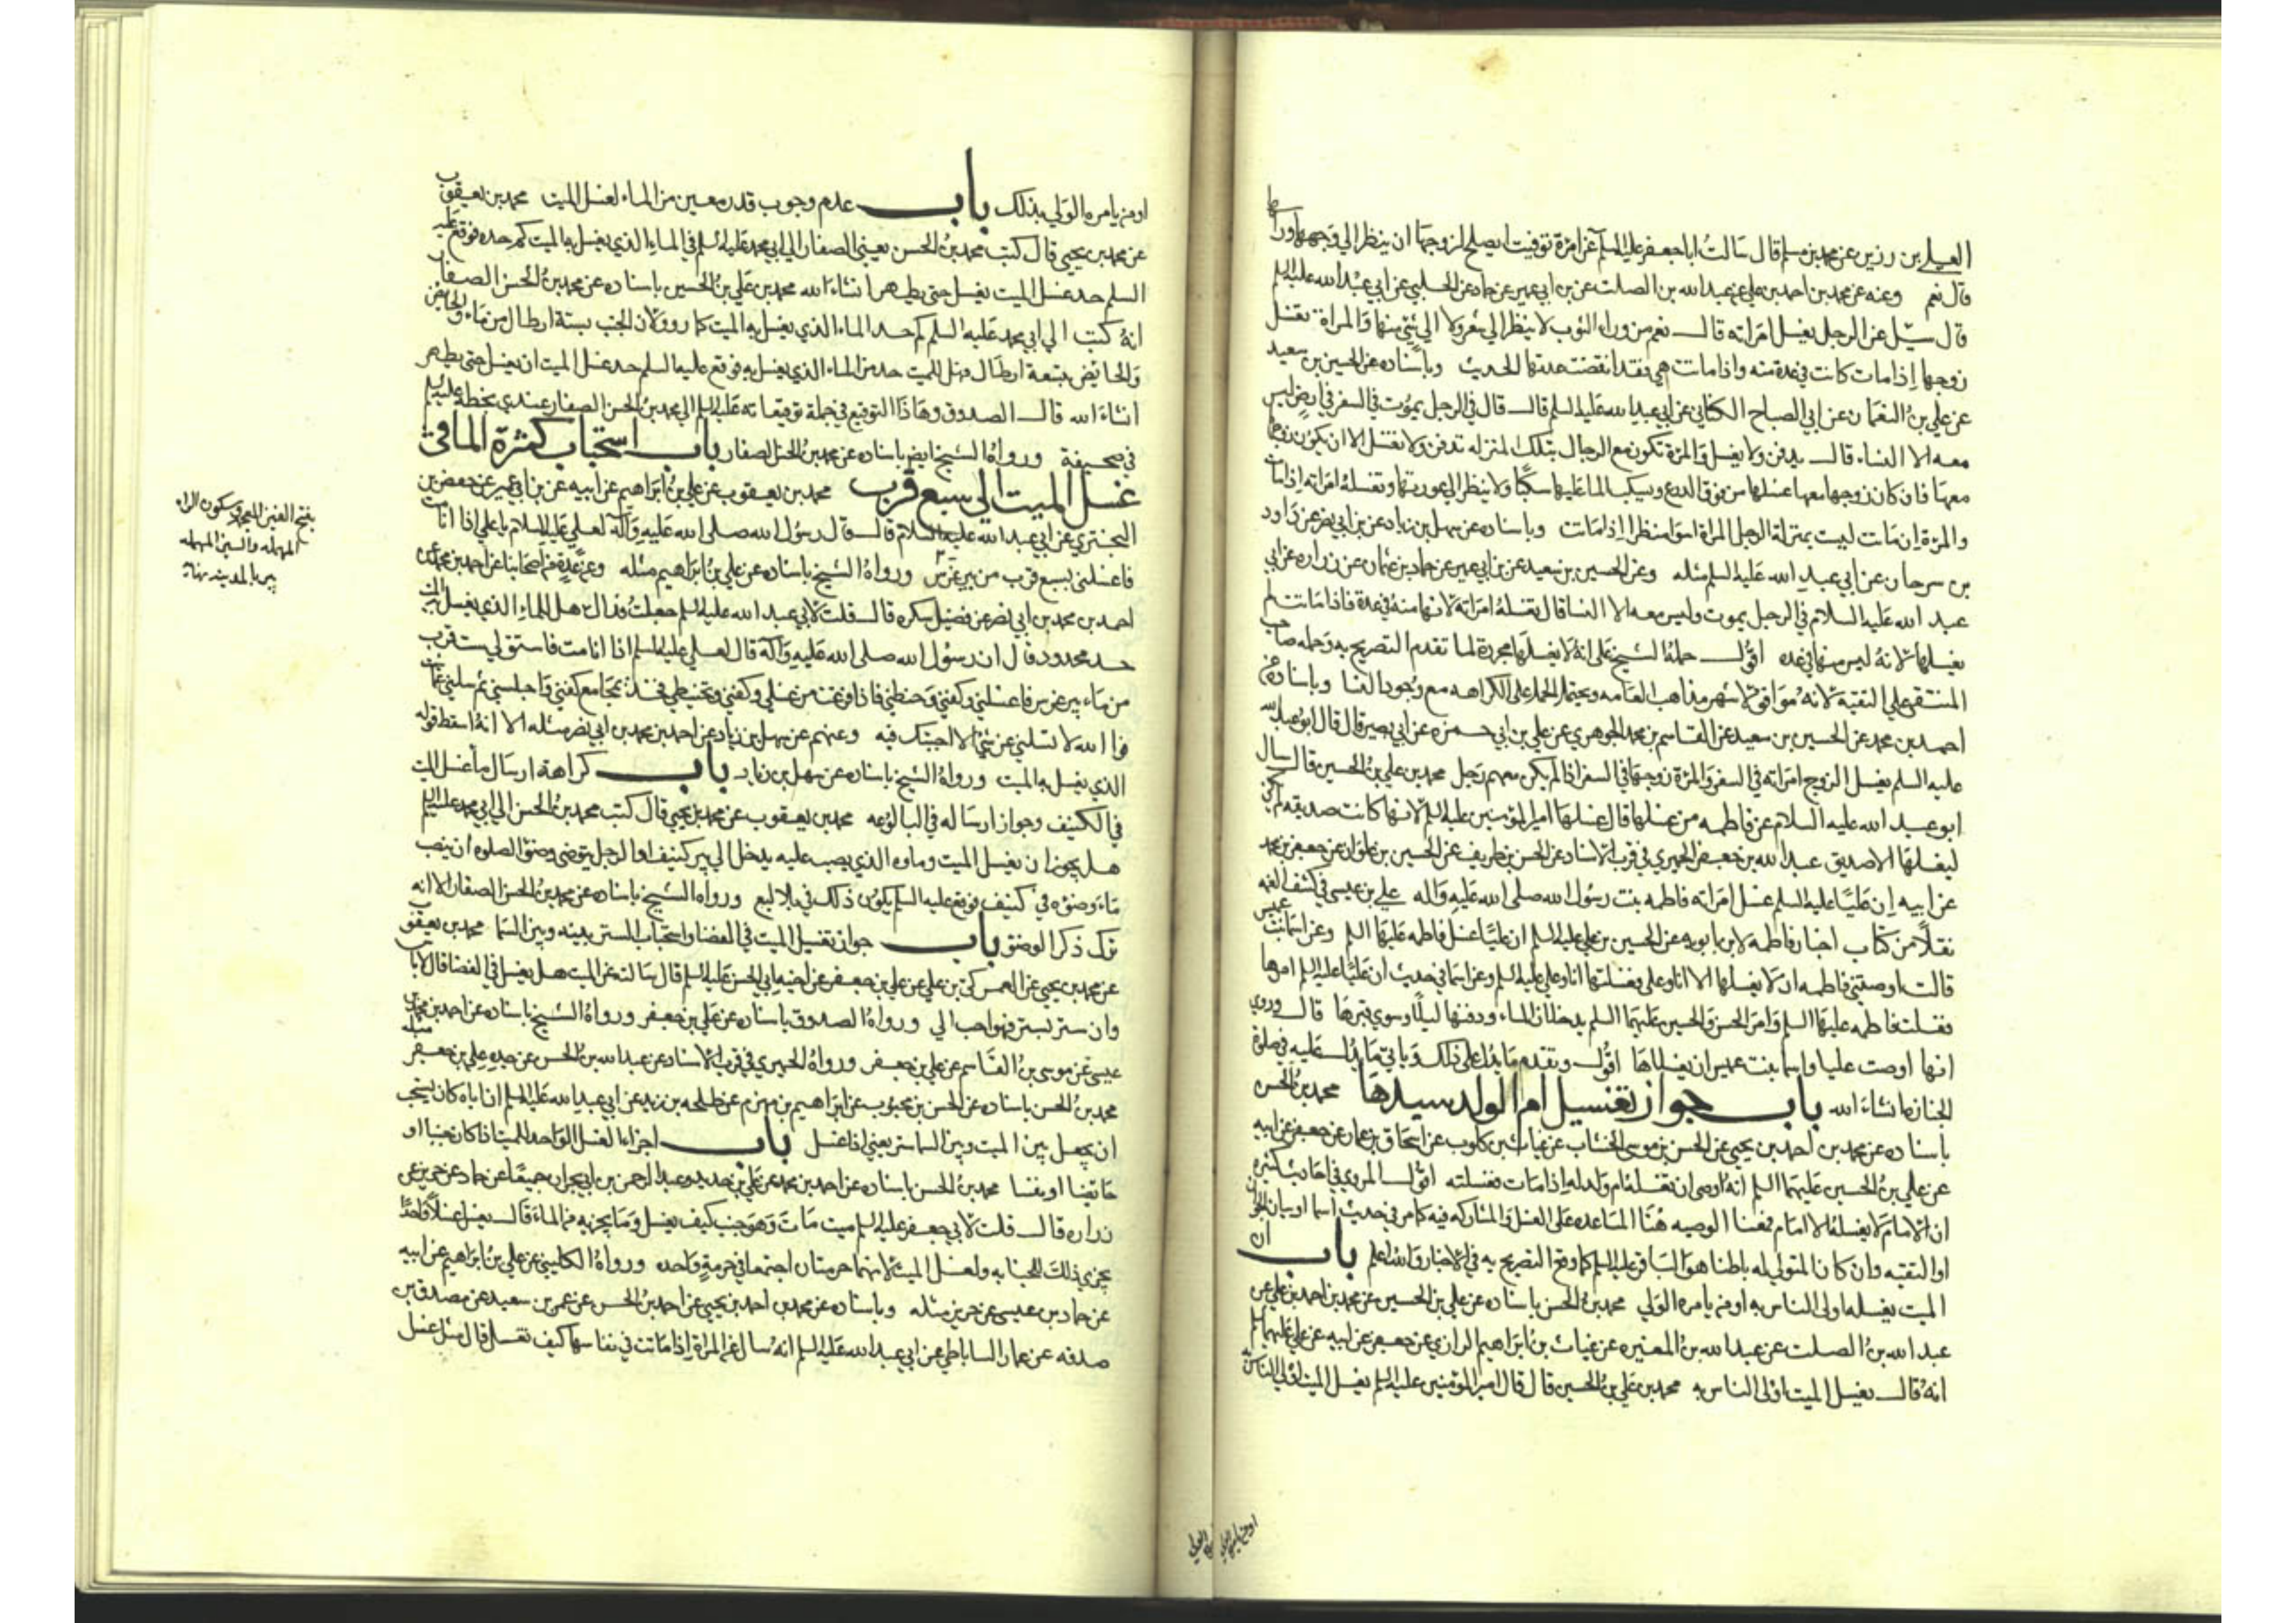 العلا بن رزين عن محمد بن مسلم قال سالت ابا جعفر عليه السلم عن امرة توفيت ايصلح لزوجها ان ينظر الى وجهها وراسها
قال نعم وعنه عن محمد بن احمد بن علي عن عبد الله بن الصلت عن بن ابي عمير عن حماد عن الحلبي عن ابي عبد الله عليه السلم
قال سئل عن الرجل يغسل امراته قال نعم من وراء الثوب لا ينظر الى شعرها ولا الى شئ منها والمراة تغسل
زوجها إذا مات كانت في عدة منه واذا ماتت هي فقد انقضت عدتها الحديث وباسناده عن الحسين بن سعيد
عن علي بن النعمان عن ابي الصباح الكناني عن ابي عبد الله عليه السلم قال قال في الرجل يموت في السفر في ارض ليس
معه الا النساء قال يدفن ولا يغسل والمرة تكون مع الرجال بتلك المنزله تدفن ولا تغسل الا ان يكون زوجها
معها فان كان زوجها معها غسلها من فوق الدرع ويسكب الما عليها سكبا ولا ينظر الى عورتها وتغسله امراته إذا مات
والمرة إن ماتت ليست بمنزلة الرجل المراة اسوا منظرا إذا ماتت وباسناده عن سهل بن زياد عن بن ابي نصر عن داود
بن سرحان عن ابي عبد الله عليه السلم مثله وعن الحسين بن سعيد عن بن ابي عمير عن حماد بن عثمان عن زراره عن ابي
عبد الله عليه السلام في الرجل يموت وليس معه الا النسا قال تغسله امراته لانها منه في عدة فاذا ماتت لم
يغسلها لانه ليس منها في عده اقول حمله الشيخ على انه لا يغسلها مجردة لما تقدم التصريح به وحمله صاحب
المنتقى على التقية لانه موافق لاشهر مذاهب العامه ويحتمل الحمل على الكراهه مع وجود النسا وباسناده عن
احمد بن محمد عن الحسين بن سعيد عن القاسم بن محمد الجوهري عن علي بن ابي حمزه عن ابي بصير قال قال ابو عبد الله
عليه السلم يغسل الزوج امراته في السفر والمرة زوجها في السفر اذا لم يكن معهم رجل محمد بن علي بن الحسين قال سال
ابو عبد الله عليه السلام عن فاطمه من غسلها قال غسلها امير المؤمنين عليه السلم لانها كانت صديقه لم يكن
ليغسلها الا صديق عبد الله بن جعفر الحميري في قرب الاسناد عن الحسن بن ظريف عن الحسين بن علوان عن جعفر بن محمد
عن ابيه إن عليًا عليه السلم غسل امراته فاطمه بنت رسول الله صلى الله عليه واله علي بن عيسى في كشف الغمه
نقلًا من كتاب اخبار فاطمه لابن بابويه عن الحسين بن علي عليه السلم ان عليًا غسل فاطمه عليها السلم وعن اسما بنت عميس
قالت اوصتني فاطمه ان لا يغسلها الا انا وعلي فغسلتها انا وعلي عليه السلم وعن اسما في حديث ان عليًا عليه السلم امرها
فغسلت فاطمه عليها السلم وامر الحسن والحسين عليهما السلم يدخلان الماء ودفنها ليلًا وسوي قبرها قال وروي
انها اوصت عليا واسما بنت عميس ان يغسلاها اقول وتقدم ما يدل على ذلك وياتي ما يدل عليه في صلوة
الجنازة انشاء الله باب جواز تغسيل ام الولد سيدها محمد بن الحسن
باسناده عن محمد بن احمد بن يحيى عن الحسن بن موسى الخشاب عن غياث بن كلوب عن اسحاق بن عمار عن جعفر عن ابيه
عن علي بن الحسين عليهما السلم انه اوصى ان تغسله ام ولد له إذا مات فغسلته اقول المروي في احاديث كثيرة
ان الامام لا يغسله الا امام فمعنا الوصيه هنا المساعده على الغسل والمشاركه فيه كما مر في حديث اسما او بيان الجواز
او التقيه وان كان المتولي له باطنا هو الباقر عليه السلم كما وقع التصريح به في الاخبار والله اعلم باب ان
الميت يغسله اولى الناس به او من يامره الولي محمد بن الحسن باسناده عن علي بن الحسين عن محمد بن احمد بن علي عن
عبد الله بن الصلت عن عبد الله بن المغيره عن غياث بن ابراهيم الرازي عن جعفر عن ابيه عن علي عليهم السلم
انه قال يغسل الميت اولى الناس به محمد بن علي بن الحسين قال قال امير المؤمنين عليه السلم يغسل الميت اولى الناس به
او من يامره الولي
او من يامره الولي بذلك باب عدم وجوب قدر معين من الماء لغسل الميت محمد بن يعقوب
عن محمد بن يحيى قال كتب محمد بن الحسن يعني الصفار الى ابي محمد عليه السلم في الماء الذي يغسل به الميت كم حده فوقع عليه
السلم حد غسل الميت يغسل حتى يطهر انشاء الله محمد بن علي بن الحسين باسناده عن محمد بن الحسن الصفار
انه كتب الى ابي محمد عليه السلم كم حد الماء الذي يغسل به الميت كما رووا ان الجنب بستة ارطال من ماء والحائض
والحائض بتسعة ارطال فهل للميت حد من الماء الذي يغسل به فوقع عليه السلم حد غسل الميت ان يغسل حتى يطهر
انشاء الله قال الصدوق وهاذا التوقيع في جملة توقيعاته عليه السلم الى محمد بن الحسن الصفار عندي بخطه عليه السلم
في صحيفة ورواه الشيخ ايضا باسناده عن محمد بن الحسن الصفار باب استحباب كثرة الما في
غسل الميت الى سبع قرب محمد بن يعقوب عن علي بن ابراهيم عن ابيه عن بن ابي عمير عن حفص بن
البختري عن ابي عبد الله عليه السلام قال قال رسول الله صلى الله عليه وآله لعلي عليه السلام يا علي إذا انا مت
فاغسلني بسبع قرب من بير غرس ورواه الشيخ باسناده عن علي بن ابراهيم مثله وعن عدة من اصحابنا عن احمد بن محمد عن
احمد بن محمد بن ابي نصر عن فضيل سكره قال قلت لابي عبد الله عليه السلم جعلت فداك هل للماء الذي يغسل به الميت
حد محدود قال ان رسول الله صلى الله عليه وآله قال لعلي عليه السلم اذا انا مت فاستق لي ست قرب
من ماء بير غرس فاغسلني وكفني وحنطني فاذا فرغت من غسلي وكفني وتحنيطي فخذ بمجامع كفني واجلسني ثم سلني عما شئت
فوالله لا تسلني عن شئ الا اجبتك فيه وعنهم عن سهل بن زياد عن احمد بن محمد بن ابي نصر مثله الا انه اسقط قوله
الذي يغسل به الميت ورواه الشيخ باسناده عن سهل بن زياد باب كراهة ارسال ما غسل الميت
في الكنيف وجواز ارساله في البالوعه محمد بن يعقوب عن محمد بن يحيى قال كتب محمد بن الحسن الى ابي محمد عليه السلم
هل يجوز ان يغسل الميت وماوه الذي يصب عليه يدخل الى بير كنيف او الرجل يتوضى وضوّ الصلوه ان ينصب
ماء وضوّه في كنيف فوقع عليه السلم يكون ذلك في بلاليع ورواه الشيخ باسناده عن محمد بن الحسن الصفار الا انه
ترك ذكر الوضوّ باب جواز تغسيل الميت في الفضا واستحباب الستر بينه وبين السما محمد بن يعقوب
عن محمد بن يحيى عن العمركي بن علي عن علي بن جعفر عن اخيه ابي الحسن عليه السلم قال سالته عن الميت هل يغسل في الفضا قال لا باس
وان ستر بستر فهو احب الي ورواه الصدوق باسناده عن علي بن جعفر ورواه الشيخ باسناده عن احمد بن محمد بن
عيسى عن موسى بن القاسم عن علي بن جعفر ورواه الحميري في قرب الاسناد عن عبد الله بن الحسن عن جده علي بن جعفر مثله
محمد بن الحسن باسناده عن الحسن بن محبوب عن ابراهيم بن مهزم عن طلحه بن زيد عن ابي عبد الله عليه السلم ان اباه كان يستحب
ان يجعل بين الميت وبين السما ستر يعني إذا غسل باب اجزاء الغسل الواحد للميت إذا كان جنبا او
حايضا او نفسا محمد بن الحسن باسناده عن احمد بن محمد عن علي بن حديد وعبد الرحمن بن ابي نجران جميعًا عن حماد عن حريز عن
زراره قال قلت لابي جعفر عليه السلم ميت مات وهو جنب كيف يغسل وما يجزيه من الماء قال يغسل غسلًا واحدًا
يجزي ذلك للجنابه ولغسل الميت لانهما حرمتان اجتمعتا في حرمة واحده ورواه الكليني عن علي بن ابراهيم عن ابيه
عن حماد بن عيسى عن حريز مثله وباسناده عن محمد بن احمد بن يحيى عن احمد بن الحسن عن عمرو بن سعيد عن مصدق بن
صدقه عن عمار الساباطي عن ابي عبد الله عليه السلم انه سال عن المراة إذا ماتت في نفاسها كيف تغسل قال مثل غسل
بفتح الغين المعجمه وسكون الراء
المهمله والسين المهمله
بير بالمدينه